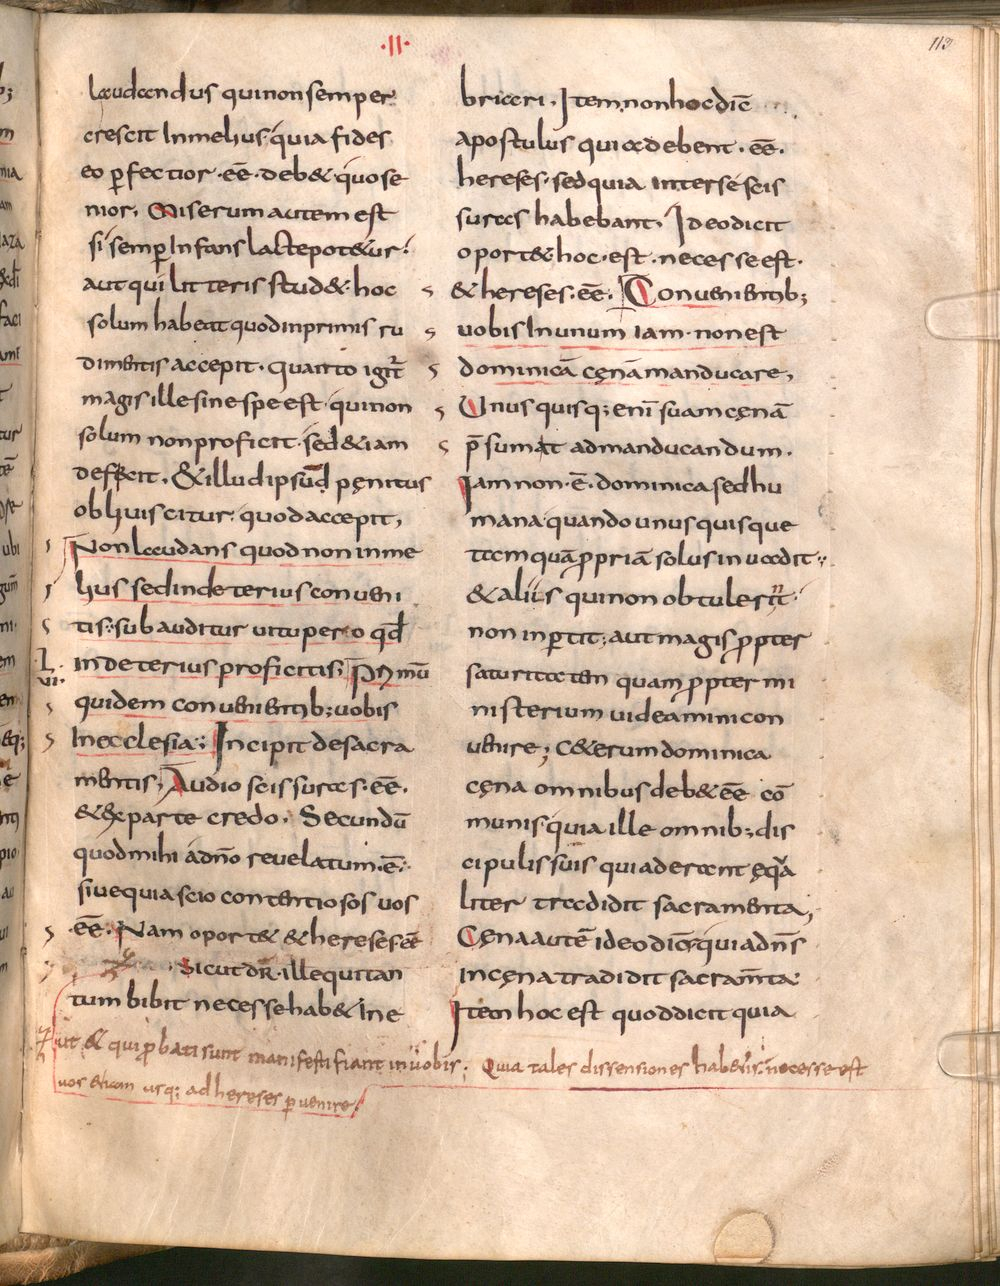 ·II·
113
laudandus qui non semper
crescit In melius, quia fides
eo ꝑfectior · eē · deb& · quo se
nior, Miserum autem est
si semꝑ Infans lactepot&ur ·
aut qui litteris stud& · hoc
solum habeat quod inprimis ru
dimentis accepit · quanto igit̄
magis ille sine spe est · qui non
solum non proficit · sed & iam
deficit · & illud ipsud pęnitus
obliuiscitur · quod accepit,
Non laudans quod non in me
lius sed in deterius conueni
tis · subauditur uitupero qđ
in deterius proficitis; Primū
quidem conuenientib; uobis
In ecclesia; Incipit de sacra
mentis; Audio scissuras · eē ·
& ex parte credo · Secundū
quod mihi a dn̄o reuelatum · ē ·
siue quia scio contentiosos uos
eē · Nam oport& & hereses eē
· Sicut dr̄ · ille qui tan
tum bibit necesse hab& Ine
briari · Item, non hoc dic̄
apostulus quia debent · eē ·
hereses · sed quia inter se scis
suras habebant, Ideo dicit
oport& · hoc · est · necesse est ·
& hereses · eē · Conuenientib;
uobis In unum iam · non est
dominicā cęnā manducare,
Unusquisq; enī suam cęnā
p̄sumat ad manducandum ·
Iam non · ē · dominica sed hu
mana · quando unusquisque
tamquā ꝓpriā solus inuadit ·
& aliis qui non obtulerit ·
non inꝑtit; aut magis ꝓpter
saturitatem quam ꝓpter mi
nisterium uideamini con
uenire; C&erum dominica
cęna omnibus deb& eē cō
munis, quia ille omnib; dis
cipulis suis qui aderant ęqua
liter tradidit sacramenta,
Cęna autē ideo dic̄ · quia dn̄s
in cęna tradidit sacram̄ta ·
Item hoc est quod dicit quia
ut & qui ꝓbati sunt manifesti fiant in uobis; Quia tales dissensiones hab&is · necesse est
uos etiam usq; ad hereses ꝑuenire